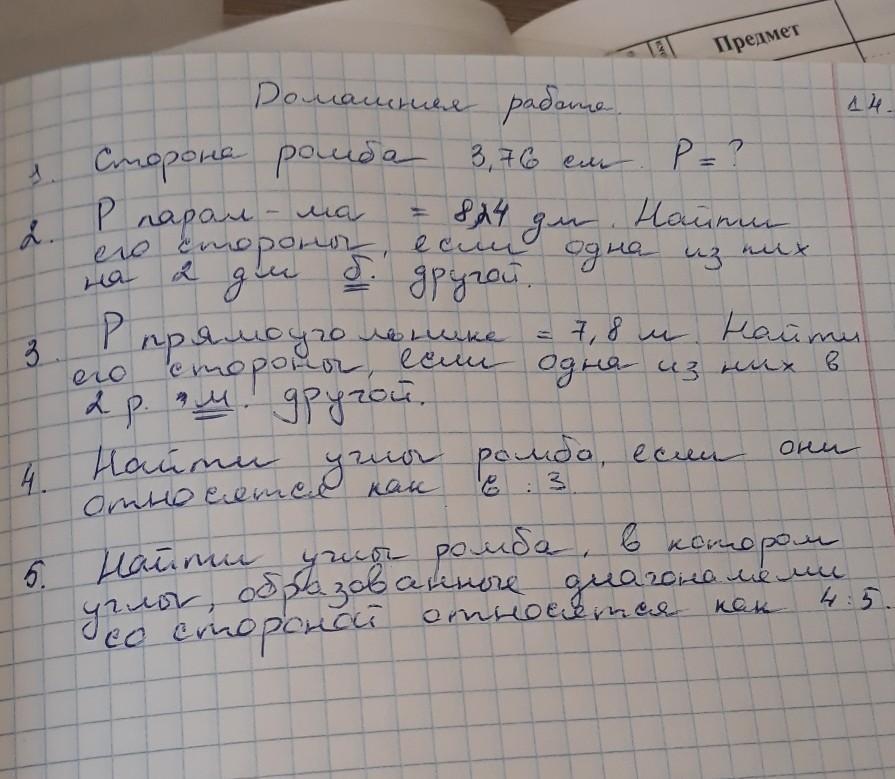 Предмет
Домашняя работа.
14.
1. Сторона ромба 3,76 см. P = ?
2. P парал-ма = 824 дм. Найти
его стороны, если одна из них
на 2 дм б. другой.
3. P прямоугольника = 7,8 м. Найти
его стороны, если одна из них в
2 р. м. другой.
4. Найти углы ромба, если они
относятся как 6 : 3.
5. Найти углы ромба, в котором
углы, образованные диагоналями
со стороной относятся как 4:5.